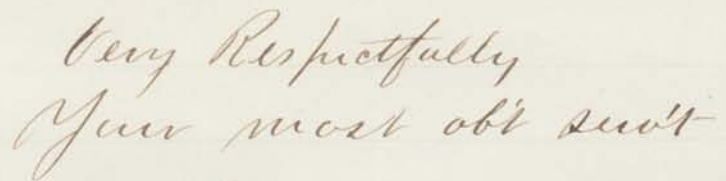 Very Respectfully
Your most ob't serv't